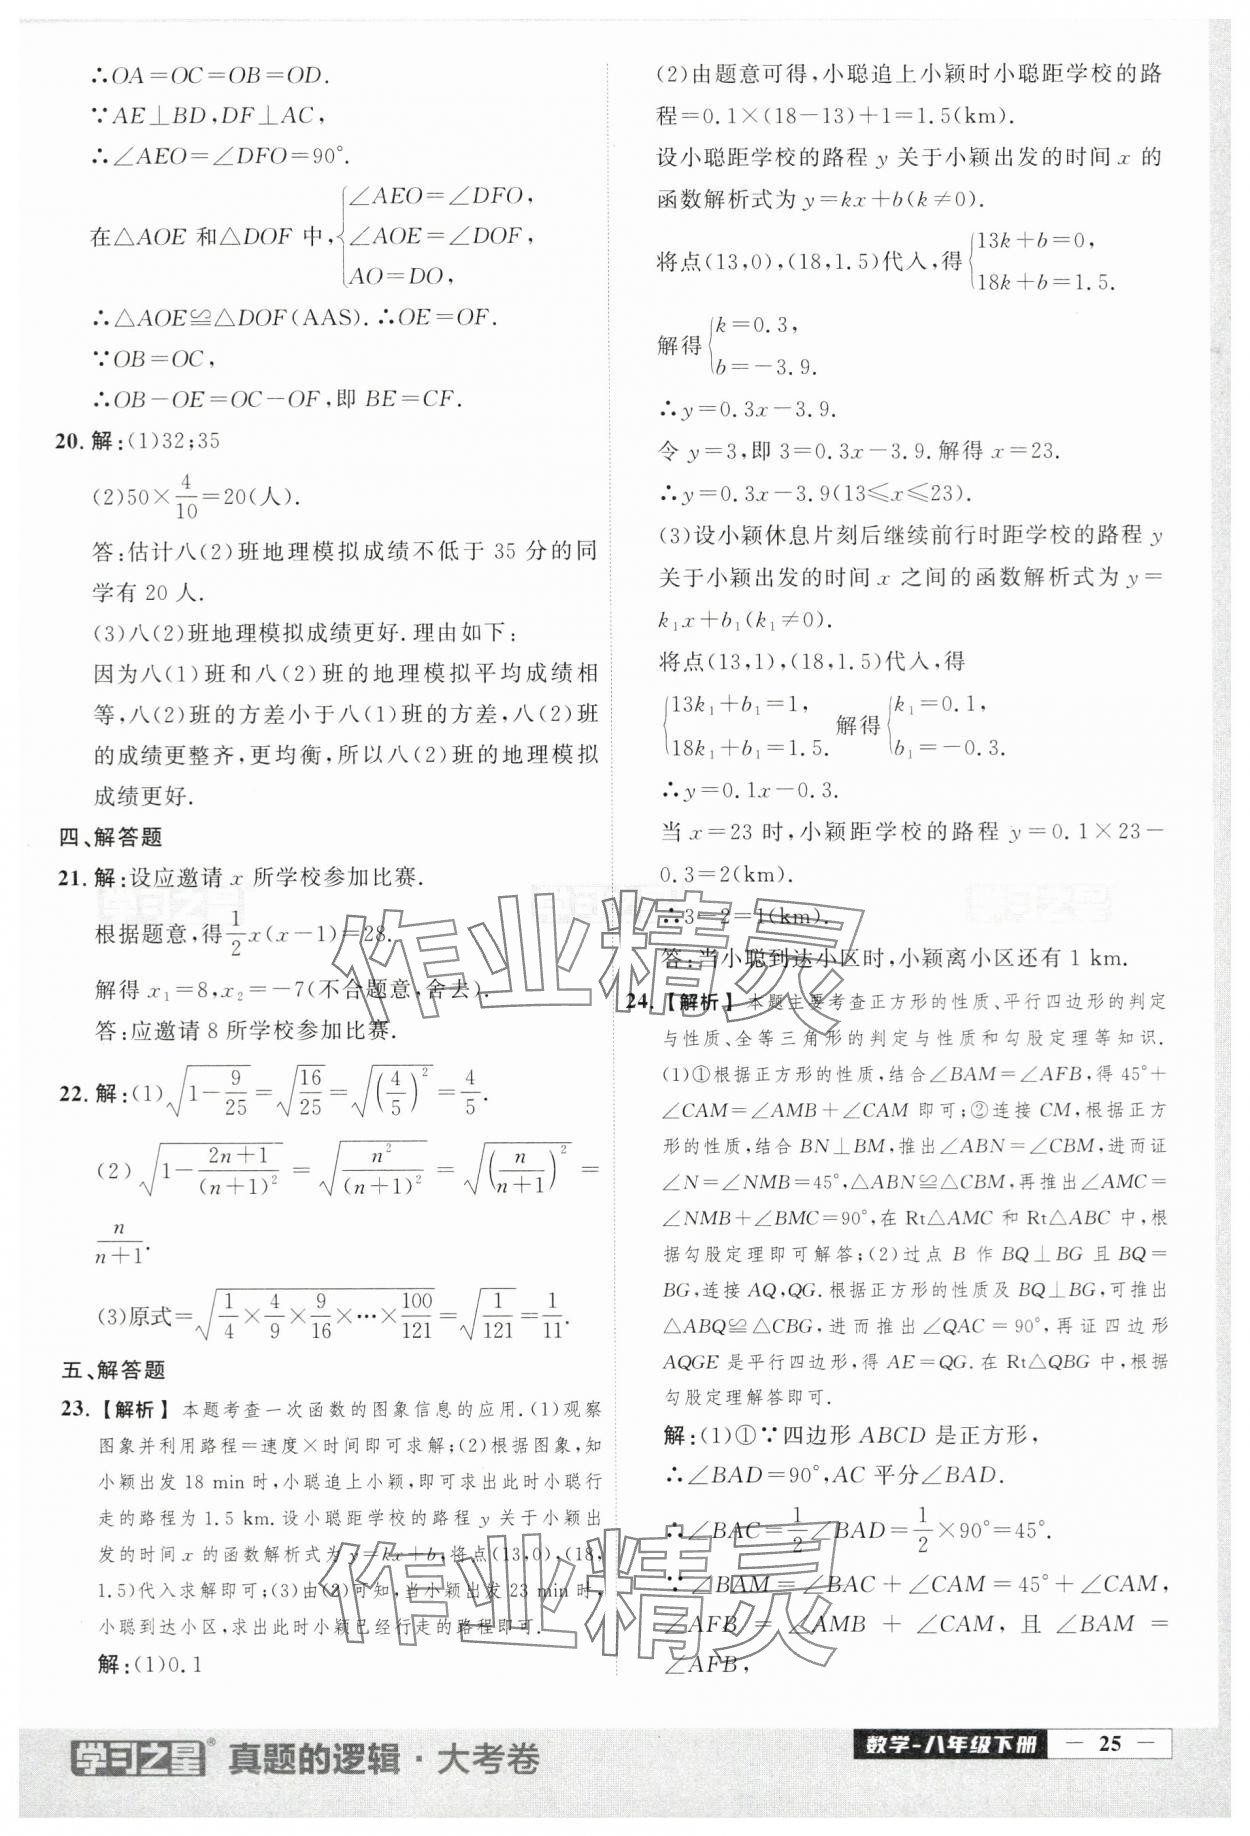 ∴OA=OC=OB=OD.
∵AE⊥BD,DF⊥AC,
∴∠AEO=∠DFO=90°.
在△AOE 和△DOF 中,{∠AEO=∠DFO,
∠AOE=∠DOF,
AO=DO,
∴△AOE≌△DOF(AAS).∴OE=OF.
∵OB=OC,
∴OB-OE=OC-OF,即 BE=CF.
20.解:(1)32;35
(2)50×4/10=20(人).
答:估计八(2)班地理模拟成绩不低于 35 分的同
学有 20 人.
(3)八(2)班地理模拟成绩更好.理由如下:
因为八(1)班和八(2)班的地理模拟平均成绩相
等,八(2)班的方差小于八(1)班的方差,八(2)班
的成绩更整齐,更均衡,所以八(2)班的地理模拟
成绩更好.
四、解答题
21.解:设应邀请 x 所学校参加比赛.
根据题意,得1/2x(x-1)=28.
解得 x₁=8,x₂=-7(不合题意,舍去).
答:应邀请 8 所学校参加比赛.
22.解:(1)√(1-9/25)=√(16/25)=√((4/5)²)=4/5.
(2)√(1-(2n+1)/(n+1)²)=√(n²/(n+1)²)=√((n/(n+1))²)=
n/(n+1).
(3)原式=√(1/4×4/9×9/16×…×100/121)=√(1/121)=1/11.
五、解答题
23.【解析】本题考查一次函数的图象信息的应用.(1)观察
图象并利用路程=速度×时间即可求解;(2)根据图象,知
小颖出发 18 min 时,小聪追上小颖,即可求出此时小聪行
走的路程为 1.5 km.设小聪距学校的路程 y 关于小颖出
发的时间 x 的函数解析式为 y=kx+b,将点(13,0),(18,
1.5)代入求解即可;(3)由(2)可知,当小颖出发 23 min 时,
小聪到达小区,求出此时小颖已经行走的路程即可.
解:(1)0.1
(2)由题意可得,小聪追上小颖时小聪距学校的路
程=0.1×(18-13)+1=1.5(km).
设小聪距学校的路程 y 关于小颖出发的时间 x 的
函数解析式为 y=kx+b(k≠0).
将点(13,0),(18,1.5)代入,得{13k+b=0,
18k+b=1.5.
解得{k=0.3,
b=-3.9.
∴y=0.3x-3.9.
令 y=3,即 3=0.3x-3.9.解得 x=23.
∴y=0.3x-3.9(13≤x≤23).
(3)设小颖休息片刻后继续前行时距学校的路程 y
关于小颖出发的时间 x 之间的函数解析式为 y=
k₁x+b₁(k₁≠0).
将点(13,1),(18,1.5)代入,得
{13k₁+b₁=1,
18k₁+b₁=1.5. 解得{k₁=0.1,
b₁=-0.3.
∴y=0.1x-0.3.
当 x=23 时,小颖距学校的路程 y=0.1×23-
0.3=2(km).
∴3-2=1(km).
答:当小聪到达小区时,小颖离小区还有 1 km.
24.【解析】本题主要考查正方形的性质、平行四边形的判定
与性质、全等三角形的判定与性质和勾股定理等知识.
(1)①根据正方形的性质,结合∠BAM=∠AFB,得 45°+
∠CAM=∠AMB+∠CAM 即可;②连接 CM,根据正方
形的性质,结合 BN⊥BM,推出∠ABN=∠CBM,进而证
∠N=∠NMB=45°,△ABN≌△CBM,再推出∠AMC=
∠NMB+∠BMC=90°,在 Rt△AMC 和 Rt△ABC 中,根
据勾股定理即可解答;(2)过点 B 作 BQ⊥BG 且 BQ=
BG,连接 AQ,QG.根据正方形的性质及 BQ⊥BG,可推出
△ABQ≌△CBG,进而推出∠QAC=90°,再证四边形
AQGE 是平行四边形,得 AE=QG.在 Rt△QBG 中,根据
勾股定理解答即可.
解:(1)①∵四边形 ABCD 是正方形,
∴∠BAD=90°,AC 平分∠BAD.
∴∠BAC=1/2∠BAD=1/2×90°=45°.
∵∠BAM=∠BAC+∠CAM=45°+∠CAM,
∠AFB=∠AMB+∠CAM,且∠BAM=
∠AFB,
作业精灵
作业精灵
学习之星
学习之星
学习之星
学习之星® 真题的逻辑·大考卷
数学-八年级下册 — 25 —